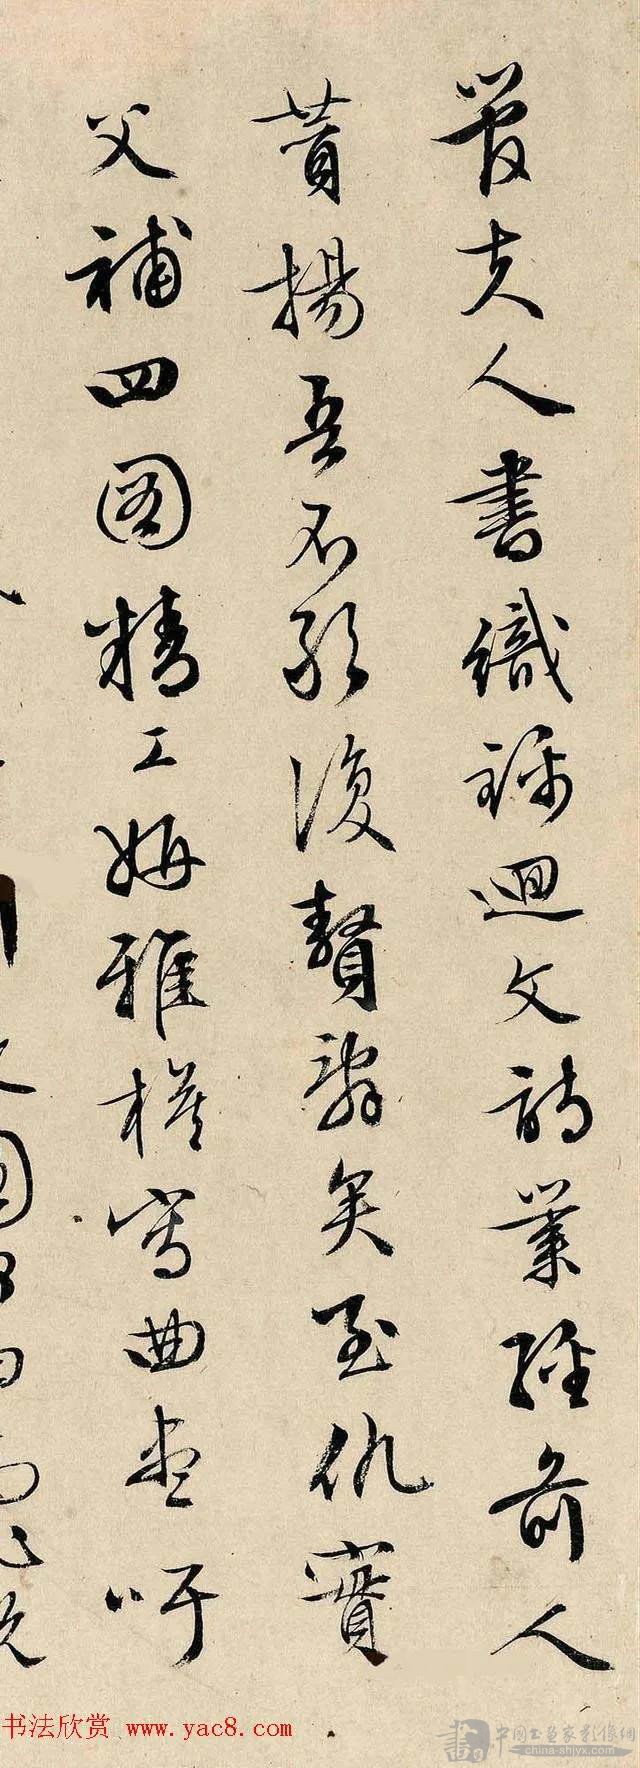 管夫人書織錦迴文詩業經前人
贊揚吾不敢復贅辭矣至仇實
父補四圖精工妍雅模寫曲盡吁
书法欣赏 www.yac8.com
中国书画家影像網
china-shjyx.com